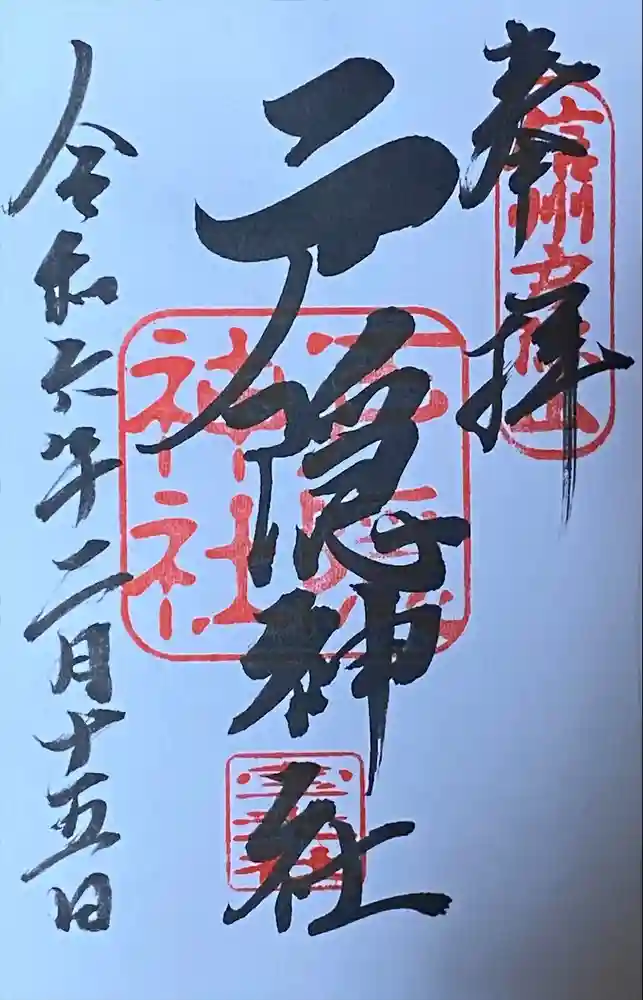 奉拝
信州戸隠山
戸隠神社
戸隠神社
令和六年二月十五日